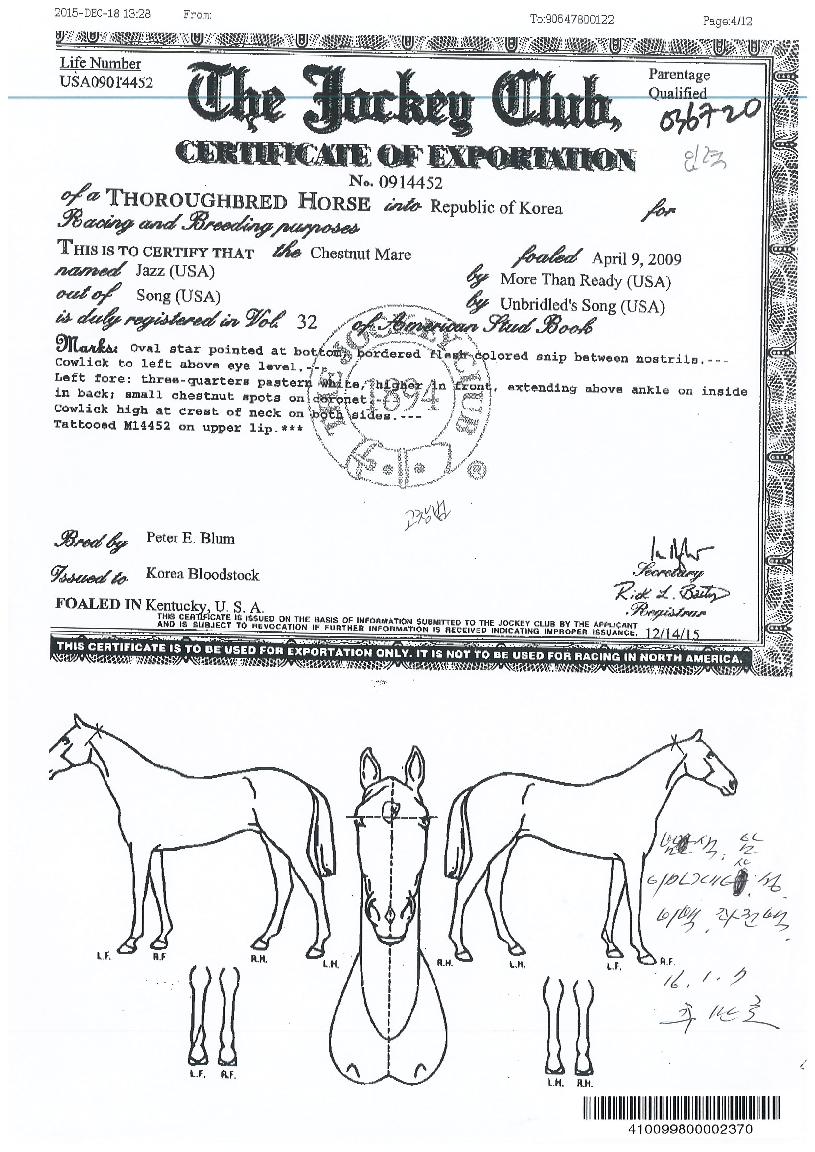 2015-DEC-18 13:28 From: To:90647800122 Page:4/12
Life Number
USA09014452
Parentage
Qualified
036720
The Jockey Club,
CERTIFICATE OF EXPORTATION
No. 0914452
of a THOROUGHBRED HORSE into Republic of Korea for
Racing and Breeding purposes
THIS IS TO CERTIFY THAT the Chestnut Mare foaled April 9, 2009
named Jazz (USA) by More Than Ready (USA)
out of Song (USA) by Unbridled's Song (USA)
is duly registered in Vol. 32 of American Stud Book
Marks: Oval star pointed at bottom, bordered flesh colored snip between nostrils.---
Cowlick to left above eye level.---
Left fore: three-quarters pastern white, higher in front, extending above ankle on inside
in back; small chestnut spots on coronet.---
Cowlick high at crest of neck on both sides.---
Tattooed M14452 on upper lip.***
THE JOCKEY CLUB
1894
®
Bred by Peter E. Blum
Issued to Korea Bloodstock
Secretary
Rick L. Bailey
Registrar
FOALED IN Kentucky, U. S. A.
THIS CERTIFICATE IS ISSUED ON THE BASIS OF INFORMATION SUBMITTED TO THE JOCKEY CLUB BY THE APPLICANT
AND IS SUBJECT TO REVOCATION IF FURTHER INFORMATION IS RECEIVED INDICATING IMPROPER ISSUANCE. 12/14/15
THIS CERTIFICATE IS TO BE USED FOR EXPORTATION ONLY. IT IS NOT TO BE USED FOR RACING IN NORTH AMERICA.
L.F. R.F R.H. L.H. R.H. L.H. L.F. R.F.
16. 1. 7
L.F. R.F. L.H. R.H.
410099800002370